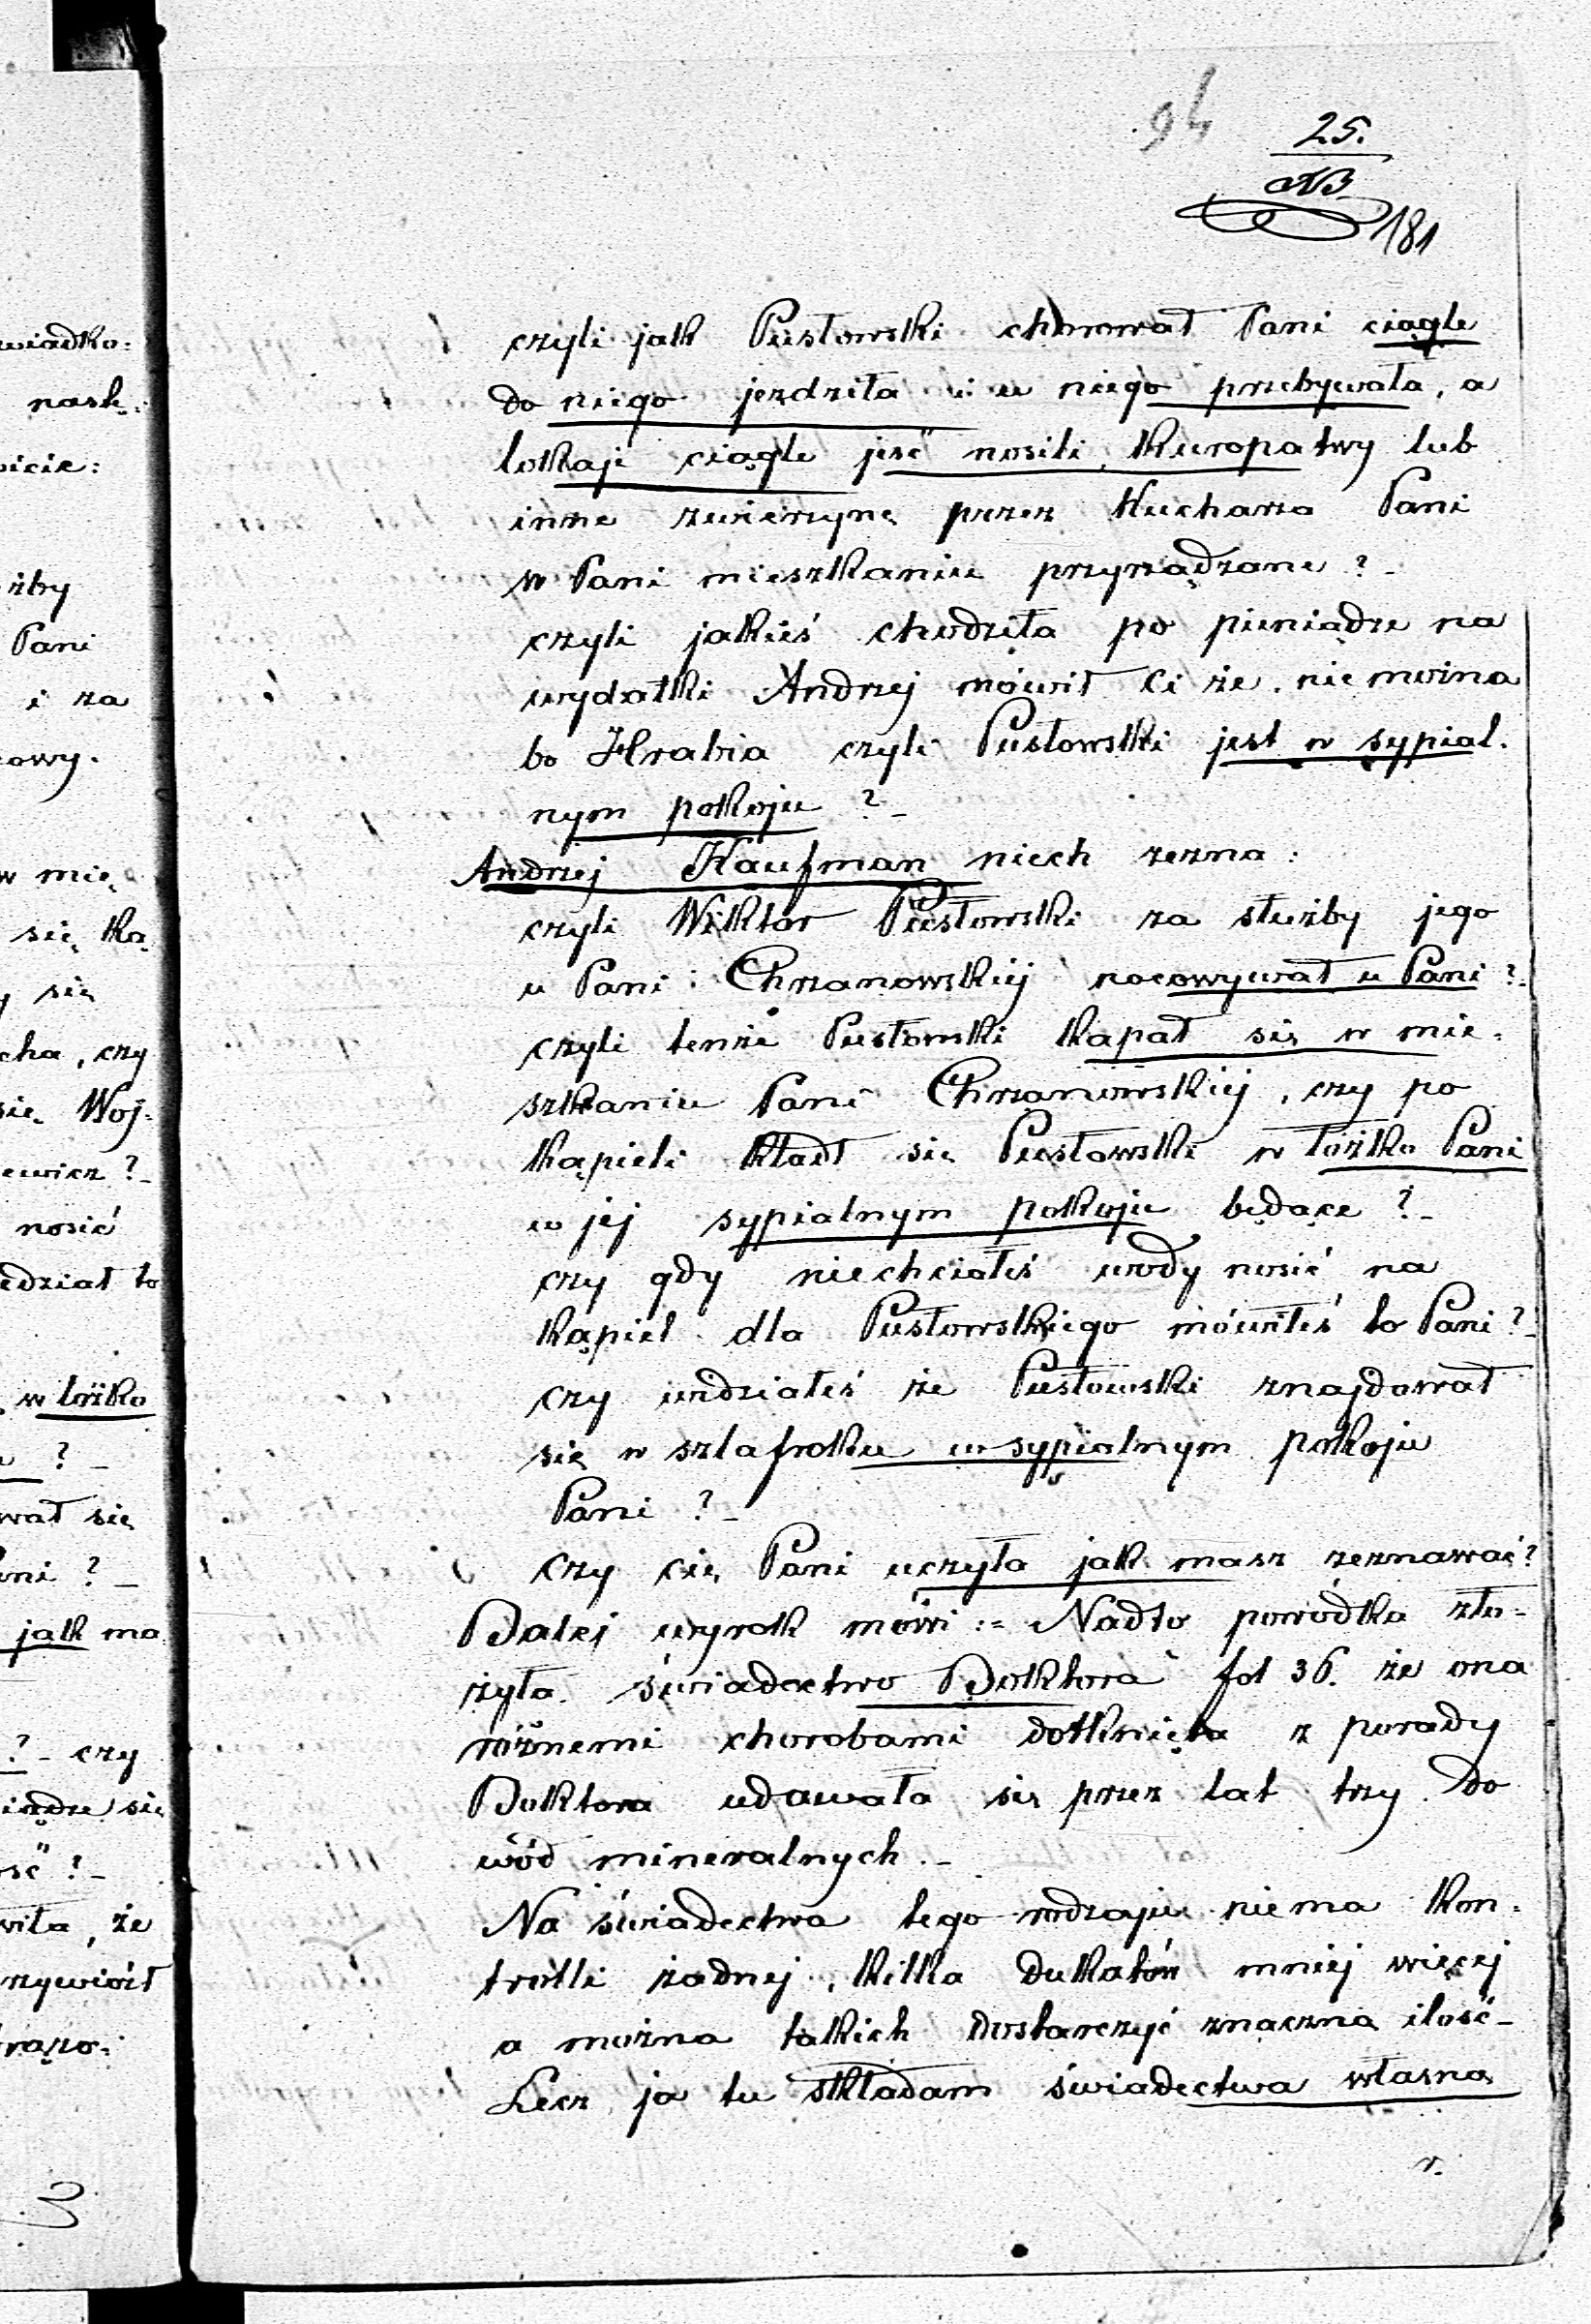 94
25.
AB.
181
czyli jak Pusłowski chorował Pani ciągle
do niego jezdziła i u niego przebywała, a
lokaje ciągle jesć nosili, kuropatwy lub
inne zwierzynę przez Kucharza Pani
w Pani mieszkaniu przyrządzane ?-
czyli jakieś chodziła po pieniądze na
wydatki Andrzej mówił Ci że niemożna
bo Hrabia czyli Pusłowski jest w sypial.
nym pokoju ?-
Andrzej Kaufman niech zezna :
czyli Wiktor Pusłowski za służby jego
u Pani Chrzanowskiej nocowywał u Pani ?-
czyli tenże Pusłowski kąpał się w mie-
szkaniu Pani Chrzanowskiej, czy po
kąpieli kładł się Pusłowski w łożko Pani
w jej sypialnym pokoju będące ?-
czy gdy niechciałeś wody nosić na
kąpiel dla Pusłowskiego mówiłeś to Pani ?-
czy widziałeś że Pusłowski znajdował
się w szlafroku w sypialnym pokoju
Pani ?-
czy cię Pani uczyła jak masz zeznawać ?
Dalej wyrok mówi := Nadto powódka zło-
żyła świadectwo Doktora fol 36. że ona
różnemi chorobami dotknięta z porady
Doktora udawała się przez lat trzy do
wód mineralnych.-
Na świadectwa tego rodzaju niema kon-
trolli żadnej, kilka dukatów mniej więcej
a można takich dostarczyć znaczną ilość-
Lecz ja tu składam świadectwa własną
r.
wiadko:
nask:
żby
Pani
i za
cowy.
w mię
się ką
y się
cha, czy
się Woj-
ewicz ?-
nosić
edział to
w łóżko
?-
wał się
ani ?-
jak ma
?- czy
ość ?-
wiła, że